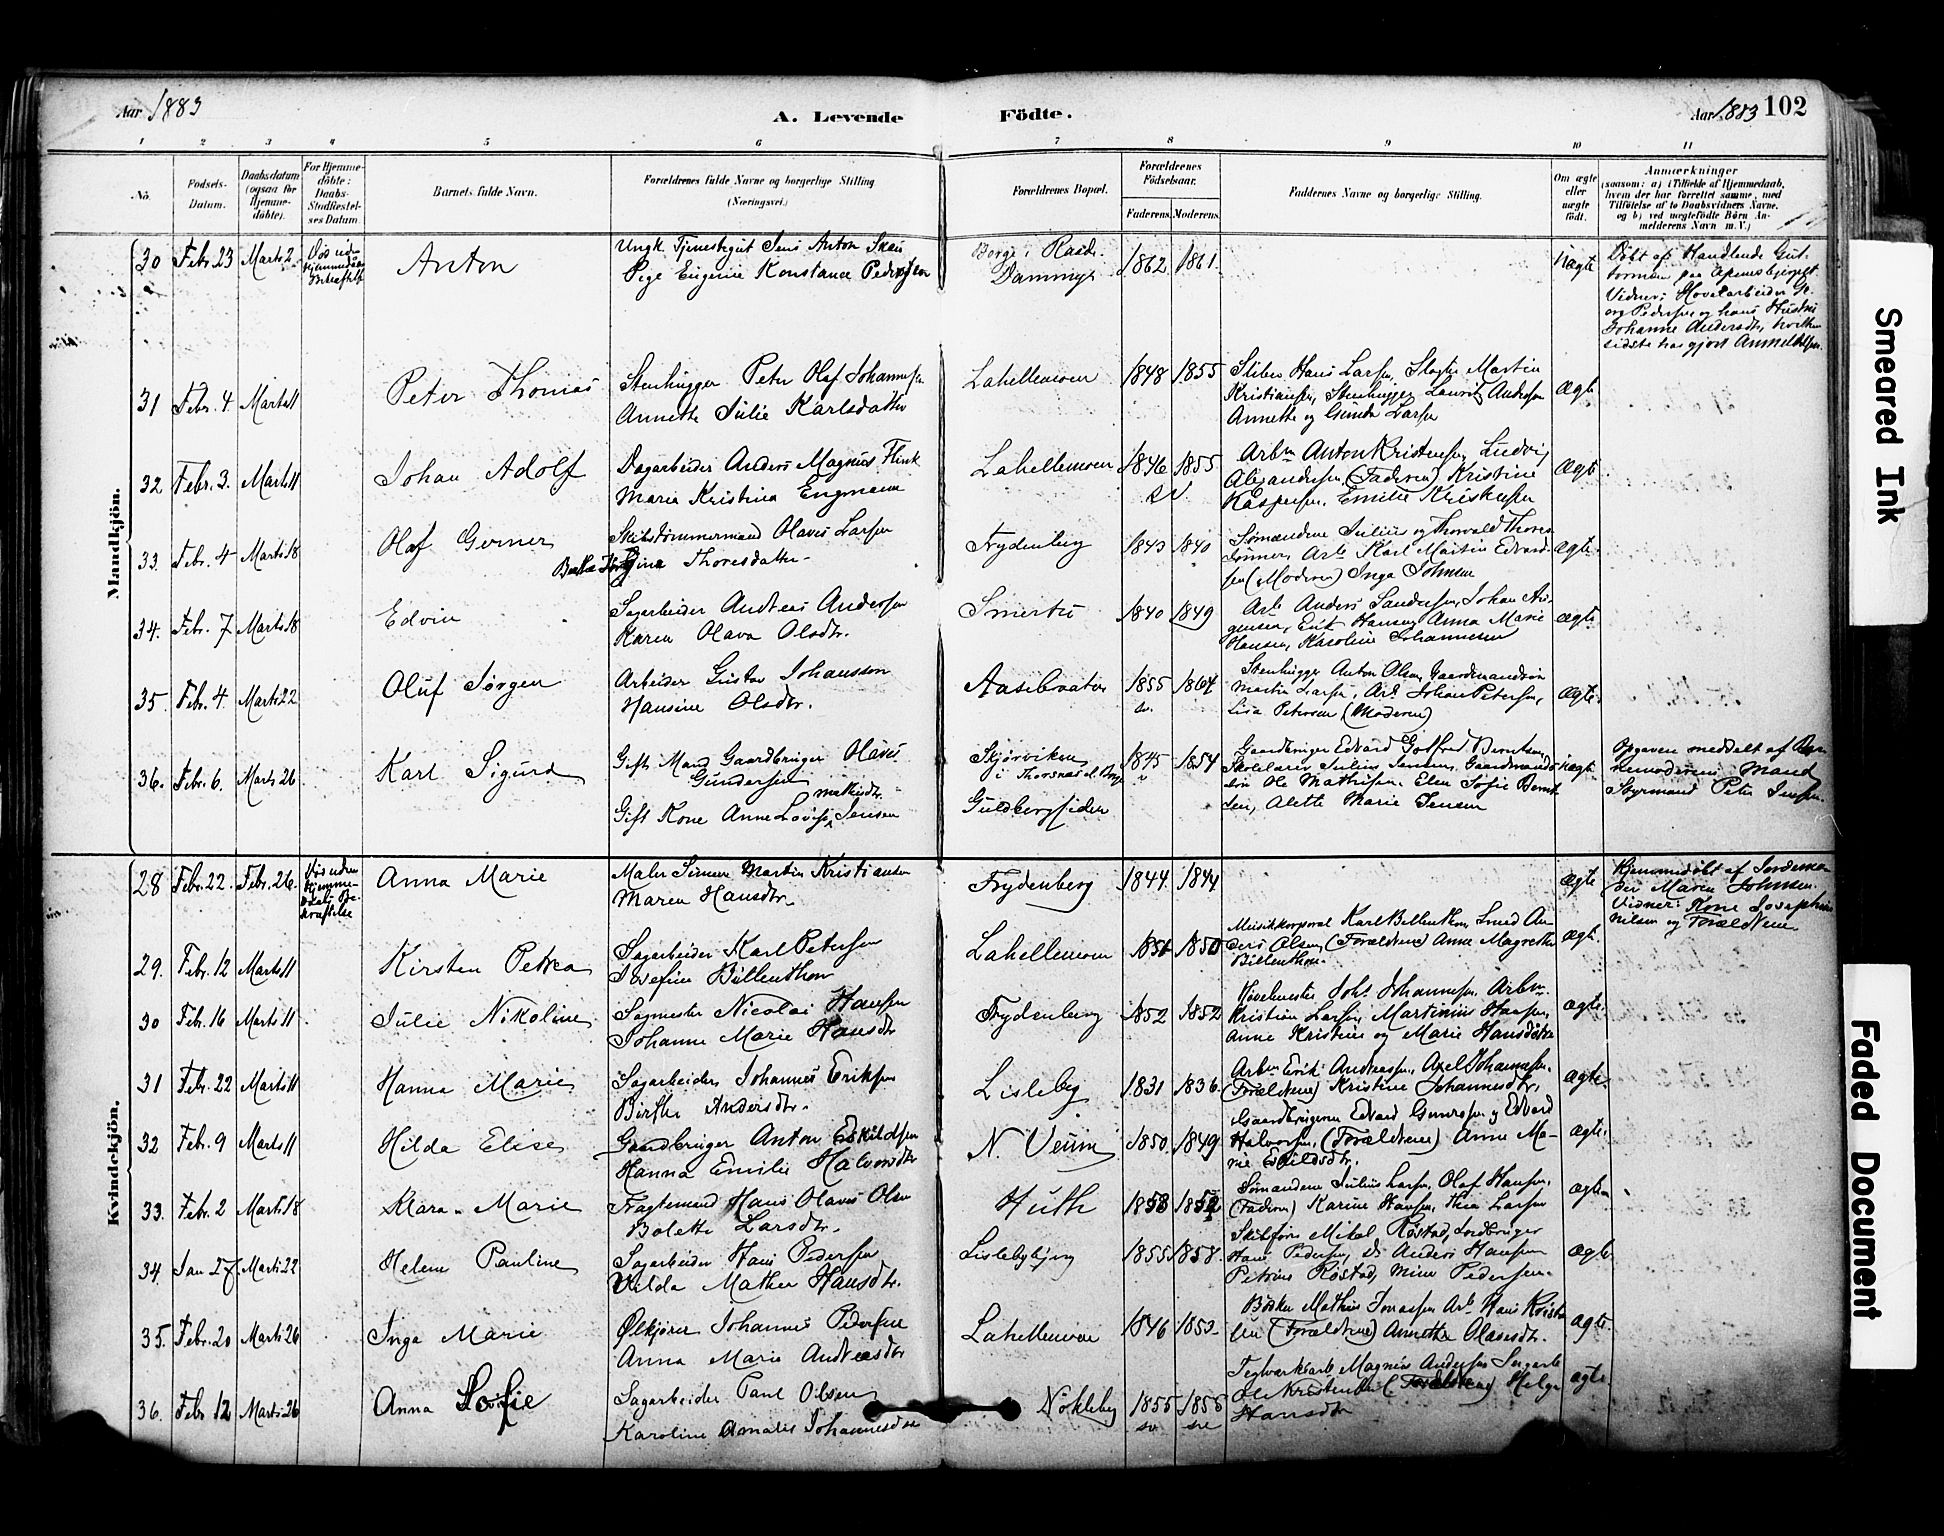 Aar 1883
A. Levende Födte.
Aar 1883 102
1 2 3 4 5 6 7 8 9 10 11
No.
Fødsels-Datum.
Daabsdatum (ogsaa for Hjemmedöbte).
For Hjemmedöbte: Daabs-Stadfæstelses Datum.
Barnets fulde Navn.
Forældrenes fulde Navne og borgerlige Stilling (Næringsvei.)
Forældrenes Bopæl.
Forældrenes Födselsaar.
Faderens. Moderens.
Faddernes Navne og borgerlige Stilling.
Om ægte eller uægte födt.
Anmærkninger
(saasom: a) i Tilfælde af Hjemmedaab,
hvem der har forrettet samme, med
Tilföielse af to Daabsvidners Navne,
og b) ved uægtefödte Börn Anmelderens Navn m. V.)
Mandkjön.
30 Febr. 23 Marts 2 Anton
Ungk. Tjenestegut Jens Anton
Pige Eugenie Konstance Pedersen
1862 1861 Uægte
Döbt af Handlende
Vidner: Hövelarbeider
Pedersen og hans Hustru
Johanne Andersdtr, hvilken
sidste har gjort Anmeldelsen.
31 Febr. 4 Marts 11 Peter Thomas
Stenhugger Peter Olaf Johannesen
Annette Julie Karlsdatter
Lahellemoen 1848 1855
Hans Larsen, Martin
Kristiansen, Stenhugger Laurits Andersen
Annette og Gunda Larsen
Ægte
32 Febr. 3. Marts 11 Johan Adolf
Dagarbeider Anders Magnus Flink
Maria Kristina Engman
Lahellemoen 1846 1855
Arbm Anton Kristensen, Ludvig
Alexandersen (Faderen) Kristine
Kaspersen, Emilie Kristensen
Ægte
33. Febr. 4 Marts 18 Olaf Gerner
Skibstömmermand Olaus Larsen
Thoresdatter
Trydenberg 1843 1840
Sömændene Julius og Thorvald
Arb. Karl Martin
(Moderen) Inga Johnsen
ægte
34. Febr. 7 Marts 18 Edvin
Sagarbeider Andreas Andersen
Karen Olava Olsdtr.
Smertu 1840 1849
Arb. Anders Sandersen, Johan
Erik Hansen, Anna Marie
Hansen, Karoline Johannesen
ægte
35. Febr. 4. Marts 22 Oluf Jörgen
Arbeider Gustav Johansson
Hansine Olsdtr.
Aasebraaten 1855 1864
Stenhugger Anton Olsen, Gaardmandssön
Martin Larsen, Arb. Johan Petersen,
Lisa Petersen (Moderen)
ægte
36. Febr. 6. Marts 26 Karl Sigurd
Gift Mand Gaardbruger Olaus
Gundersen
Gift Kone Anne Lovise Mathisdtr. Jensen
Skjærviken
i Thorsnæs
Guldbergsiden
1845 1854
Gaardbruger Edvard Gotfred Berntsen
Skolelærer Julius Jensen, Gaardmandssön
Ole Mathisen, Elen Sofie Berntsen, Alette Marie Jensen
uægte
Opgaven meddelt af Barnemoderens Mand
Styrmand Peter Jensen.
Kvindekjön.
28 Febr. 22. Febr. 26. Anna Marie
Maler Simen Martin Kristiansen
Maren Hansdtr.
Trydenberg 1844 1844 ægte
Hjemmedöbt af Jordemoder Maren Johnsen
Vidner: Kone Josephine
Nilsen og Forældrene
29. Febr. 12 Marts 11 Kirsten Petrea
Sagarbeider Karl Petersen
Josefine Billenthon
Lahellemoen 1851 1850
Musikkorporal Karl Billenthon, Smed Anders Olsen, (Forældrene) Anne Magrethe
Billenthon.
ægte.
30 Febr. 16 Marts 11 Julie Nikoline
Sagmester Nicolai Hansen
Johanne Marie Hansdtr
Trydenberg 1852 1852
Hövelmester Johs. Johannesen, Arbm.
Kristian Larsen, Martinius Hansen,
Anne Kristine og Marie Hansdötre
ægte
31 Febr. 22 Marts 11 Hanna Marie
Sagarbeider Johannes Eriksen
Birthe Andersdtr.
Lisleby 1831 1836
Arbm Erik Andreassen, Axel Johannesen,
(Forældrene) Kristine Johannesdtr,
ægte
32 Febr. 9 Marts 11 Hilda Elise
Gaardbruger Anton Eskildsen
Hanna Emilie Halvorsdtr
N. Veum 1850. 1849
Gaardbrugerne Edvard Gunersen og Edvard
Halvorsen, (Forældrene) Anne Marie Eskildsdtr.
ægte.
33. Febr. 2 Marts 18 Klara Marie
Fragtemand Hans Olaus Olsen
Bolette Larsdtr.
Huth 1853 1852
Sömændene Julius Larsen, Olaf Hansen,
(Faderen) Karine Hansen, Thea Larsen
ægte
34. Jan 27 Marts 22 Helene Pauline
Sagarbeider Hans Pedersen
Hilda Mathea Hansdtr.
Lislebybjerg 1855 1858.
Skibsförer Mikal Röstad, Jordbruger
Hans Pedersen, do Anders Hansen
Petrine Röstad, Mina Pedersen.
ægte
35. Febr. 20 Marts 26 Inga Marie
Ölkjörer Johannes Pedersen
Anna Marie Andreasdtr
Lahellemoen 1846 1853
Bödker Mathias Jonassen Arb. Hans
(Forældrene) Annette Olausdtr.
ægte
36. Febr 12 Marts 26 Anna Sofie
Sagarbeider Paul Olsen
Karoline Amalie Johannesdtr
Nökleby 1855 1856
Teglværksarb. Magnus Andersen
Ole Kristensen (Forældrene) Helga
Hansdtr
ægte
Smeared Ink
Faded Document